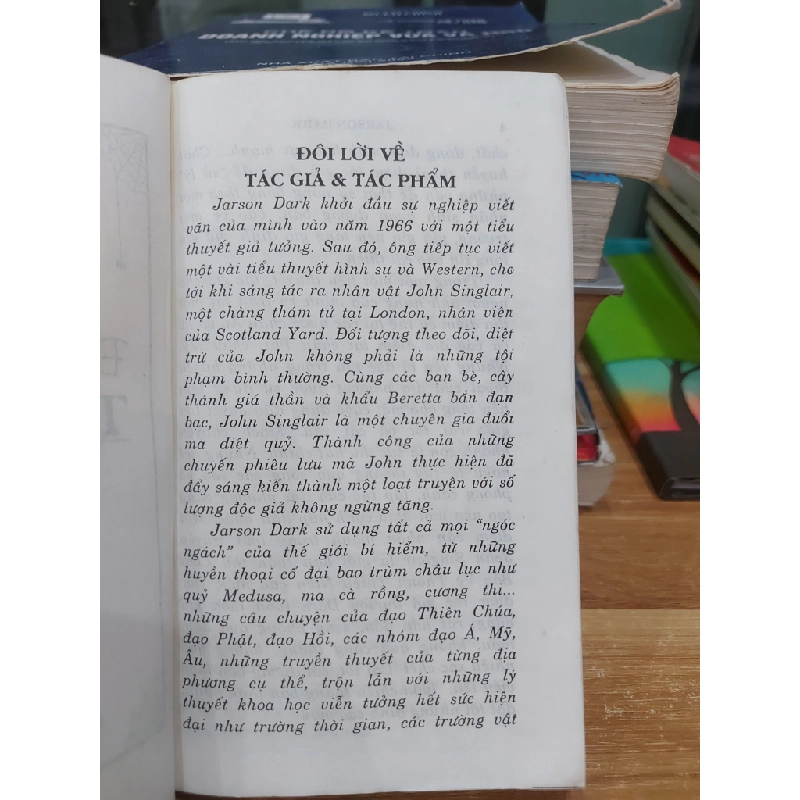 DOANH NGHIỆP VỪA VÀ
ĐÔI LỜI VỀ
TÁC GIẢ & TÁC PHẨM
Jarson Dark khởi đầu sự nghiệp viết
văn của mình vào năm 1966 với một tiểu
thuyết giả tưởng. Sau đó, ông tiếp tục viết
một vài tiểu thuyết hình sự và Western, cho
tới khi sáng tác ra nhân vật John Singlair,
một chàng thám tử tại London, nhân viên
của Scotland Yard. Đối tượng theo dõi, diệt
trừ của John không phải là những tội
phạm bình thường. Cùng các bạn bè, cây
thánh giá thần và khẩu Beretta bắn đạn
bạc, John Singlair là một chuyên gia đuổi
ma diệt quỷ. Thành công của những
chuyến phiêu lưu mà John thực hiện đã
đẩy sáng kiến thành một loạt truyện với số
lượng độc giả không ngừng tăng.
Jarson Dark sử dụng tất cả mọi "ngóc
ngách" của thế giới bí hiểm, từ những
huyền thoại cổ đại bao trùm châu lục như
quỷ Medusa, ma cà rồng, cương thi...
những câu chuyện của đạo Thiên Chúa,
đạo Phật, đạo Hồi, các nhóm đạo Á, Mỹ,
Âu, những truyền thuyết của từng địa
phương cụ thể, trộn lẫn với những lý
thuyết khoa học viễn tưởng hết sức hiện
đại như trường thời gian, các trường vật